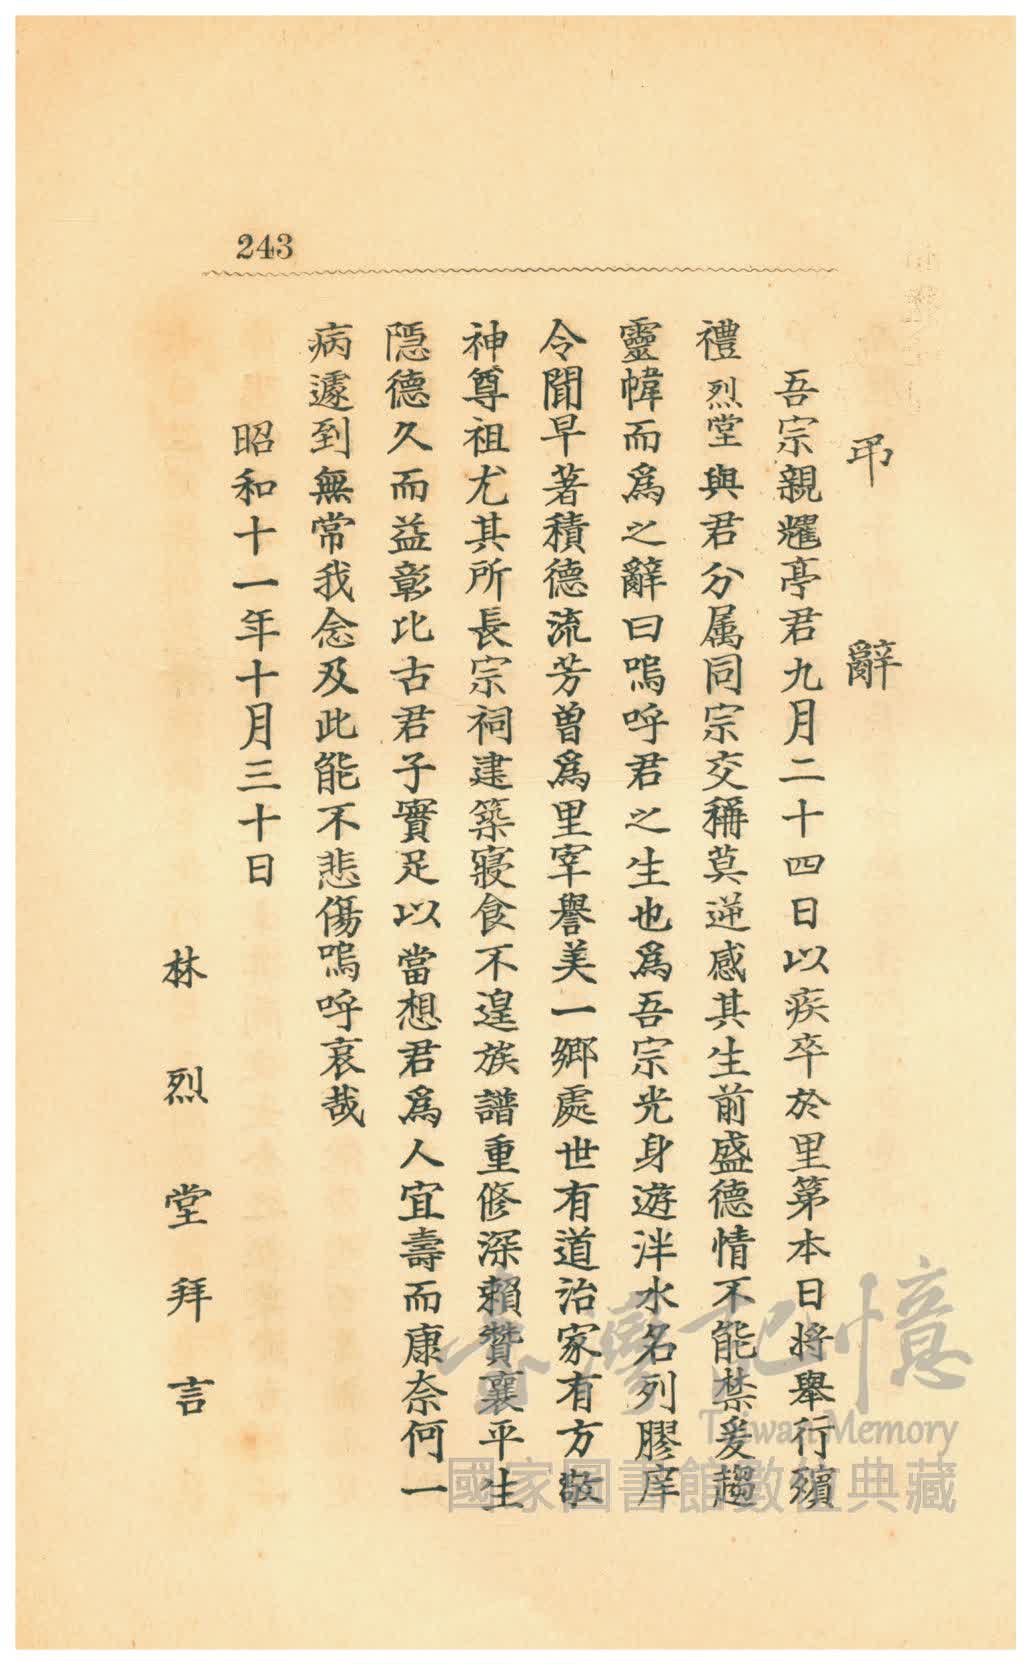 243
弔辭
吾宗親耀亭君九月二十四日以疾卒於里第本日將舉行殯
禮烈堂與君分属同宗交稱莫逆感其生前盛德情不能禁爰趨
靈幃而爲之辭曰嗚呼君之生也爲吾宗光身遊泮水名列膠庠
令聞早著積德流芳曾爲里宰譽美一鄉處世有道治家有方敬
神尊祖尤其所長宗祠建築寢食不遑族譜重修深賴贊襄平生
隱德久而益彰比古君子實足以當想君爲人宜壽而康奈何一
病遽到無常我念及此能不悲傷嗚呼哀哉
昭和十一年十月三十日
林烈堂拜言
臺灣記憶
Taiwan Memory
國家圖書館數位典藏